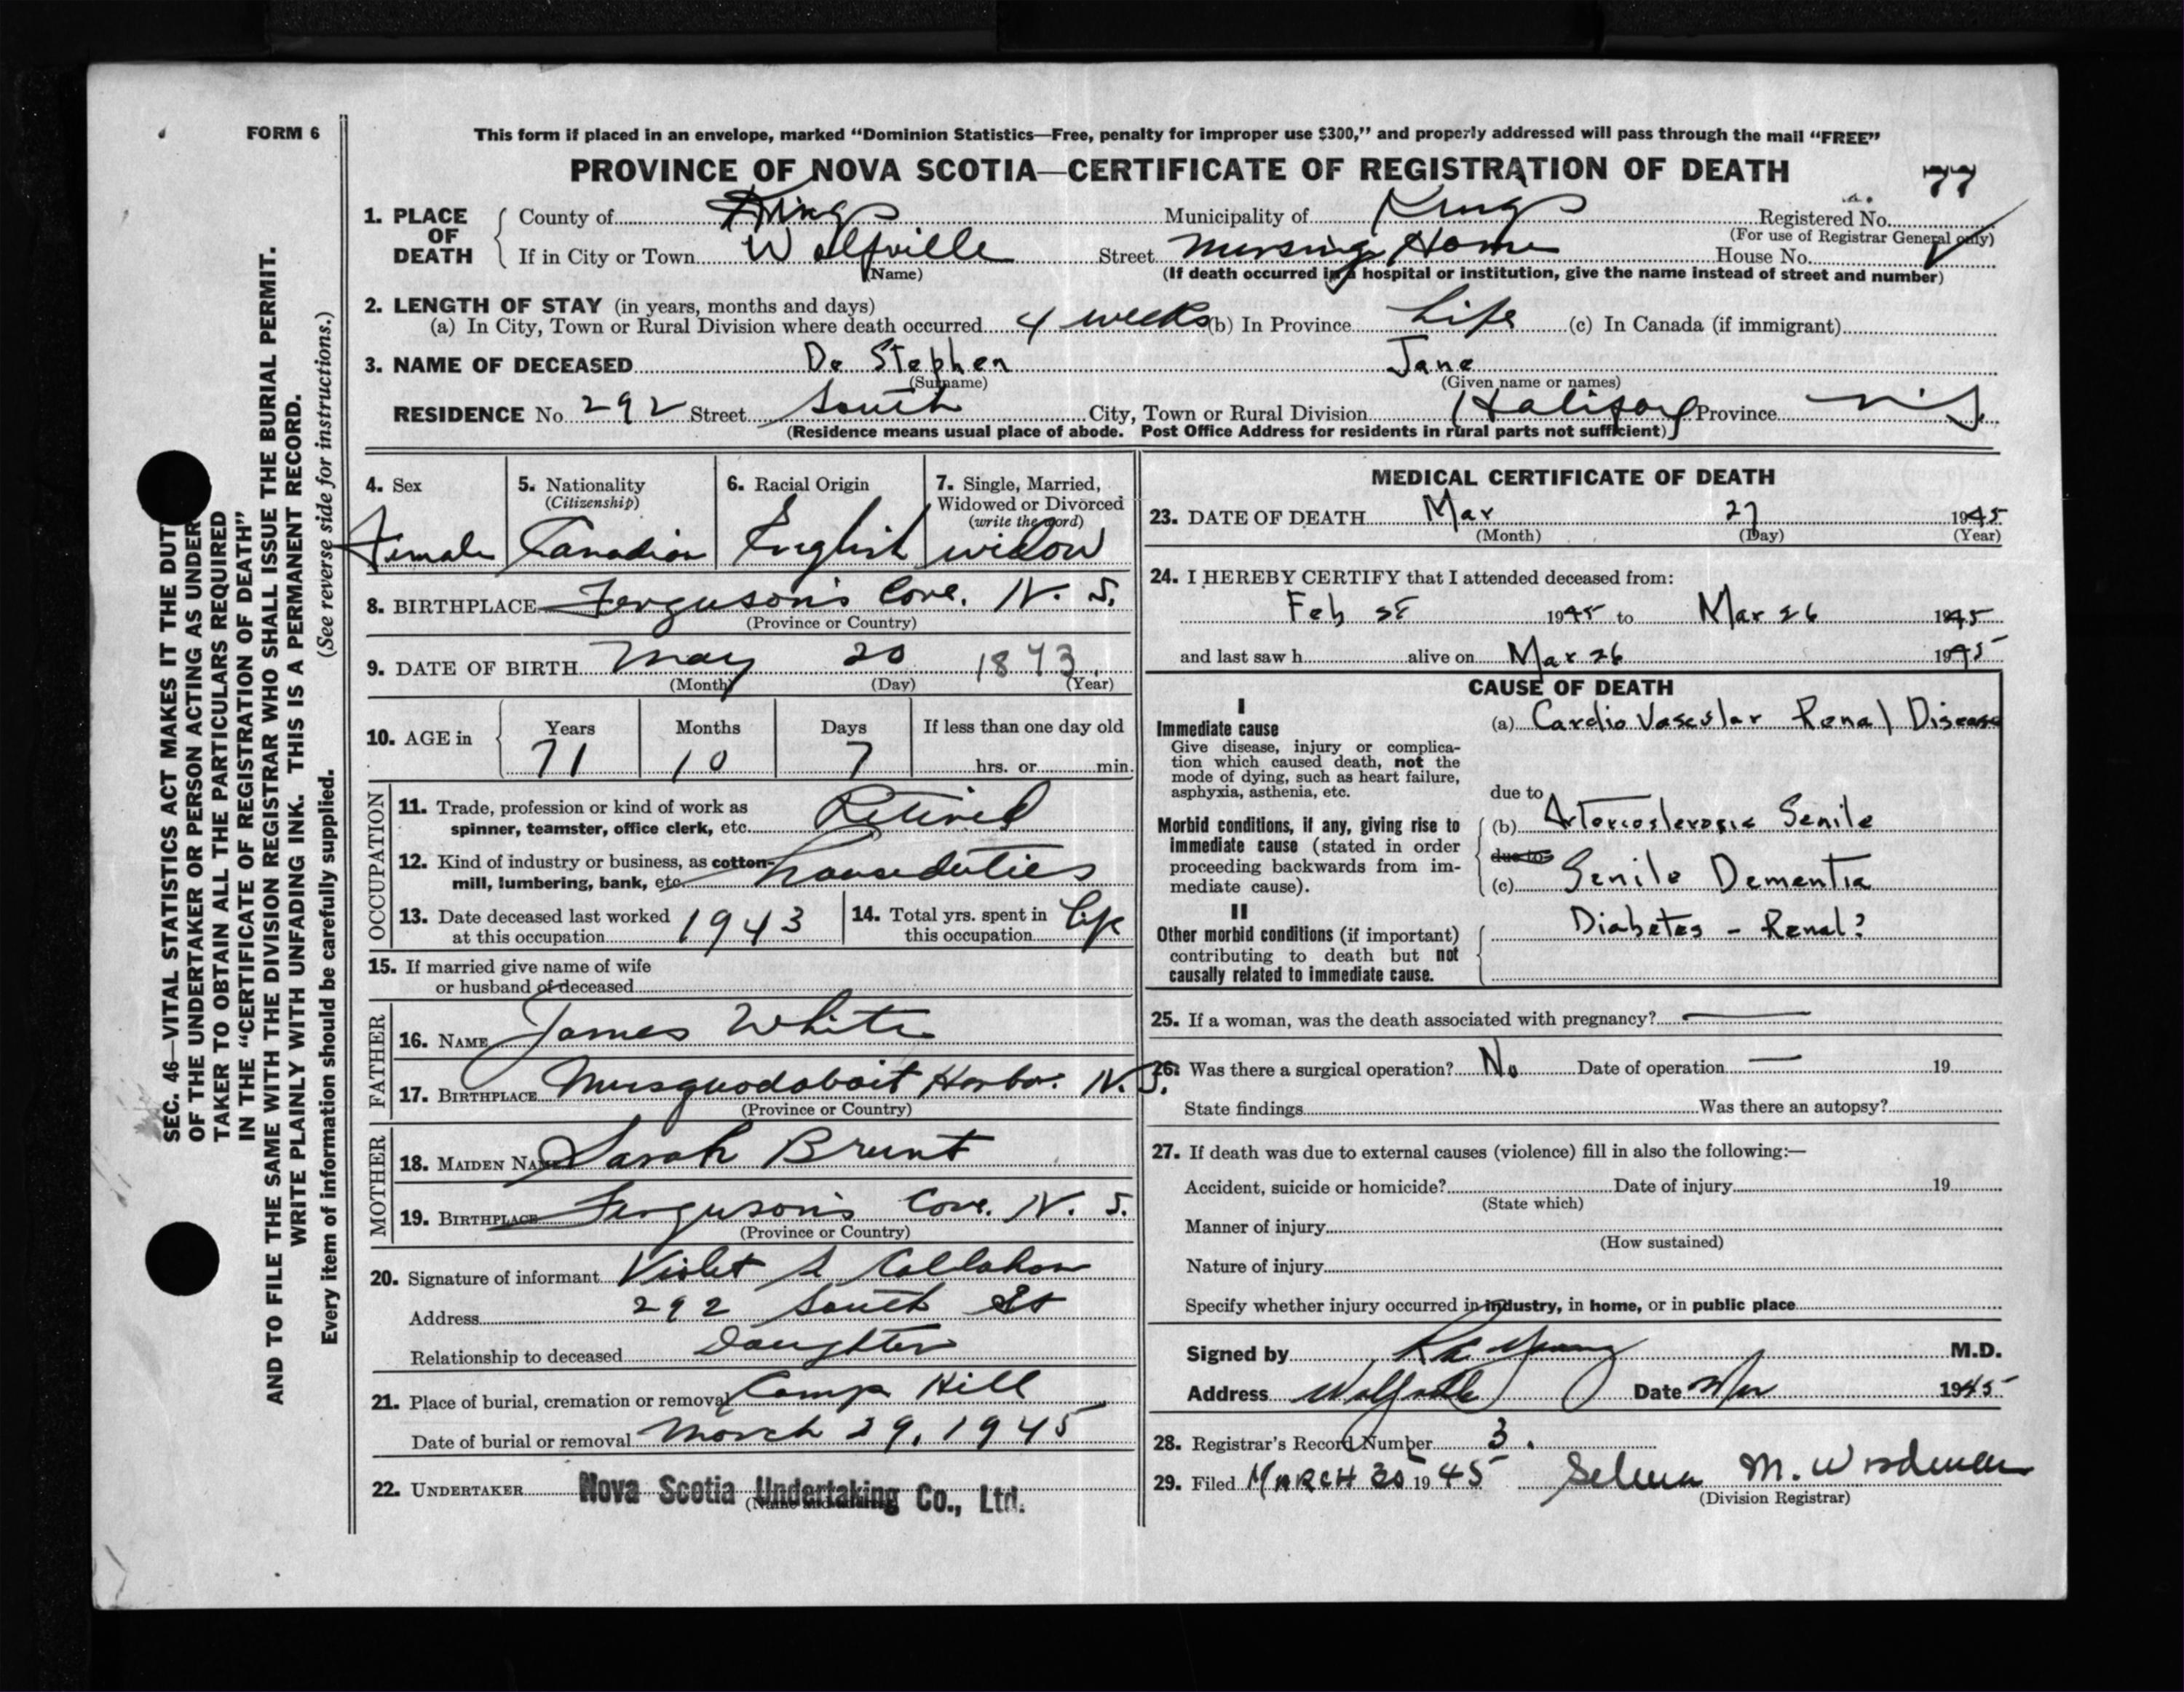 FORM 6
This form if placed in an envelope, marked “Dominion Statistics—Free, penalty for improper use $300,” and properly addressed will pass through the mail “FREE”
PROVINCE OF NOVA SCOTIA—CERTIFICATE OF REGISTRATION OF DEATH
77
1. PLACE OF DEATH
County of Kings Municipality of Kings Registered No.
(For use of Registrar General only)
If in City or Town Wolfville Street Nursing Home House No.
(Name) (If death occurred in a hospital or institution, give the name instead of street and number)
2. LENGTH OF STAY (in years, months and days)
(a) In City, Town or Rural Division where death occurred 4 weeks (b) In Province Life (c) In Canada (if immigrant)
3. NAME OF DECEASED De Stephen Jane
(Surname) (Given name or names)
RESIDENCE No. 292 Street South City, Town or Rural Division Halifax Province N.S.
(Residence means usual place of abode. Post Office Address for residents in rural parts not sufficient)
4. Sex
Female
5. Nationality
(Citizenship)
Canadian
6. Racial Origin
English
7. Single, Married, Widowed or Divorced
(write the word)
widow
8. BIRTHPLACE Ferguson's Cove. N. S.
(Province or Country)
9. DATE OF BIRTH May 20 1873
(Month) (Day) (Year)
10. AGE in
Years Months Days If less than one day old
71 10 7 hrs. or min.
OCCUPATION
11. Trade, profession or kind of work as
spinner, teamster, office clerk, etc. Retired
12. Kind of industry or business, as cotton-
mill, lumbering, bank, etc. houseduties
13. Date deceased last worked
at this occupation 1943
14. Total yrs. spent in
this occupation life
15. If married give name of wife
or husband of deceased
FATHER
16. NAME James White
17. BIRTHPLACE Musquodoboit Harbor. N.S.
(Province or Country)
MOTHER
18. MAIDEN NAME Sarah Brunt
19. BIRTHPLACE Ferguson's Cove. N. S.
(Province or Country)
20. Signature of informant Violet S Callahan
Address 292 South St
Relationship to deceased Daughter
21. Place of burial, cremation or removal Camp Hill
Date of burial or removal March 29, 1945
22. UNDERTAKER Nova Scotia Undertaking Co., Ltd.
MEDICAL CERTIFICATE OF DEATH
23. DATE OF DEATH Mar 27 1945
(Month) (Day) (Year)
24. I HEREBY CERTIFY that I attended deceased from:
Feb 1945 to Mar 26 1945
and last saw h alive on Mar 26 1945
CAUSE OF DEATH
I
Immediate cause
(a) Cardio Vascular Renal Disease
Give disease, injury or complica-
tion which caused death, not the
mode of dying, such as heart failure,
asphyxia, asthenia, etc.
due to
Morbid conditions, if any, giving rise to
immediate cause (stated in order
proceeding backwards from im-
mediate cause).
(b) Senile
due to
(c) Senile Dementia
II
Other morbid conditions (if important)
contributing to death but not
causally related to immediate cause.
Diabetes - Renal?
25. If a woman, was the death associated with pregnancy? —
26. Was there a surgical operation? No Date of operation — 19
State findings Was there an autopsy?
27. If death was due to external causes (violence) fill in also the following:—
Accident, suicide or homicide? Date of injury 19
(State which)
Manner of injury
(How sustained)
Nature of injury
Specify whether injury occurred in industry, in home, or in public place
Signed by M.D.
Address Wolfville Date Mar 1945
28. Registrar's Record Number 3.
29. Filed MARCH 30 1945 Selena M. Woodman
(Division Registrar)
SEC. 46—VITAL STATISTICS ACT MAKES IT THE DUT
OF THE UNDERTAKER OR PERSON ACTING AS UNDER
TAKER TO OBTAIN ALL THE PARTICULARS REQUIRED
IN THE “CERTIFICATE OF REGISTRATION OF DEATH”
AND TO FILE THE SAME WITH THE DIVISION REGISTRAR WHO SHALL ISSUE THE BURIAL PERMIT.
WRITE PLAINLY WITH UNFADING INK. THIS IS A PERMANENT RECORD.
Every item of information should be carefully supplied. (See reverse side for instructions.)